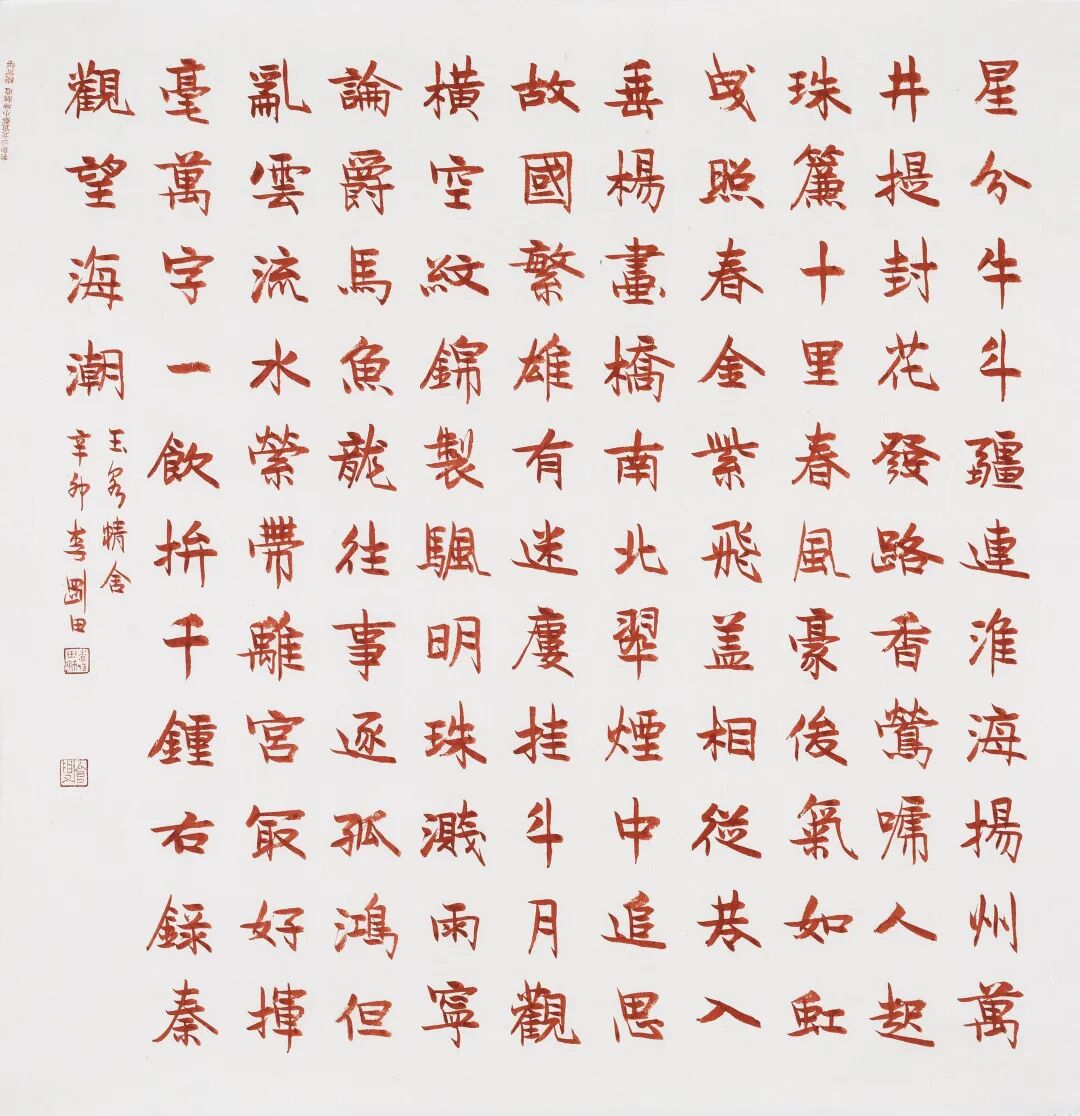 星分牛斗疆連淮海揚州萬
井提封花發路香鶯嘯人起
珠簾十里春風豪俊氣如虹
曵照春金紫飛蓋相從巷入
垂楊畫橋南北翠煙中追思
故國繁雄有迷廔挂斗月觀
橫空紋錦製颿明珠濺雨寧
論爵馬魚龍往事逐孤鴻但
亂雲流水縈帶離宮最好揮
毫萬字一飲拚千鍾右錄秦
觀望海潮
玉客情舍
辛卯李剛田